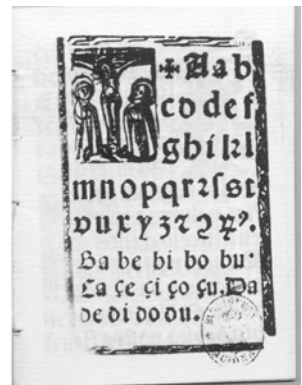 ✠ A a b
c o d e f
g h i k l
m n o p q r ꝛ ſ s t
v u x y z ⁊ ꝯ ꝝ ꝰ.
Ba be bi bo bu.
Ca çe çi ço çu. Da
de di do du.